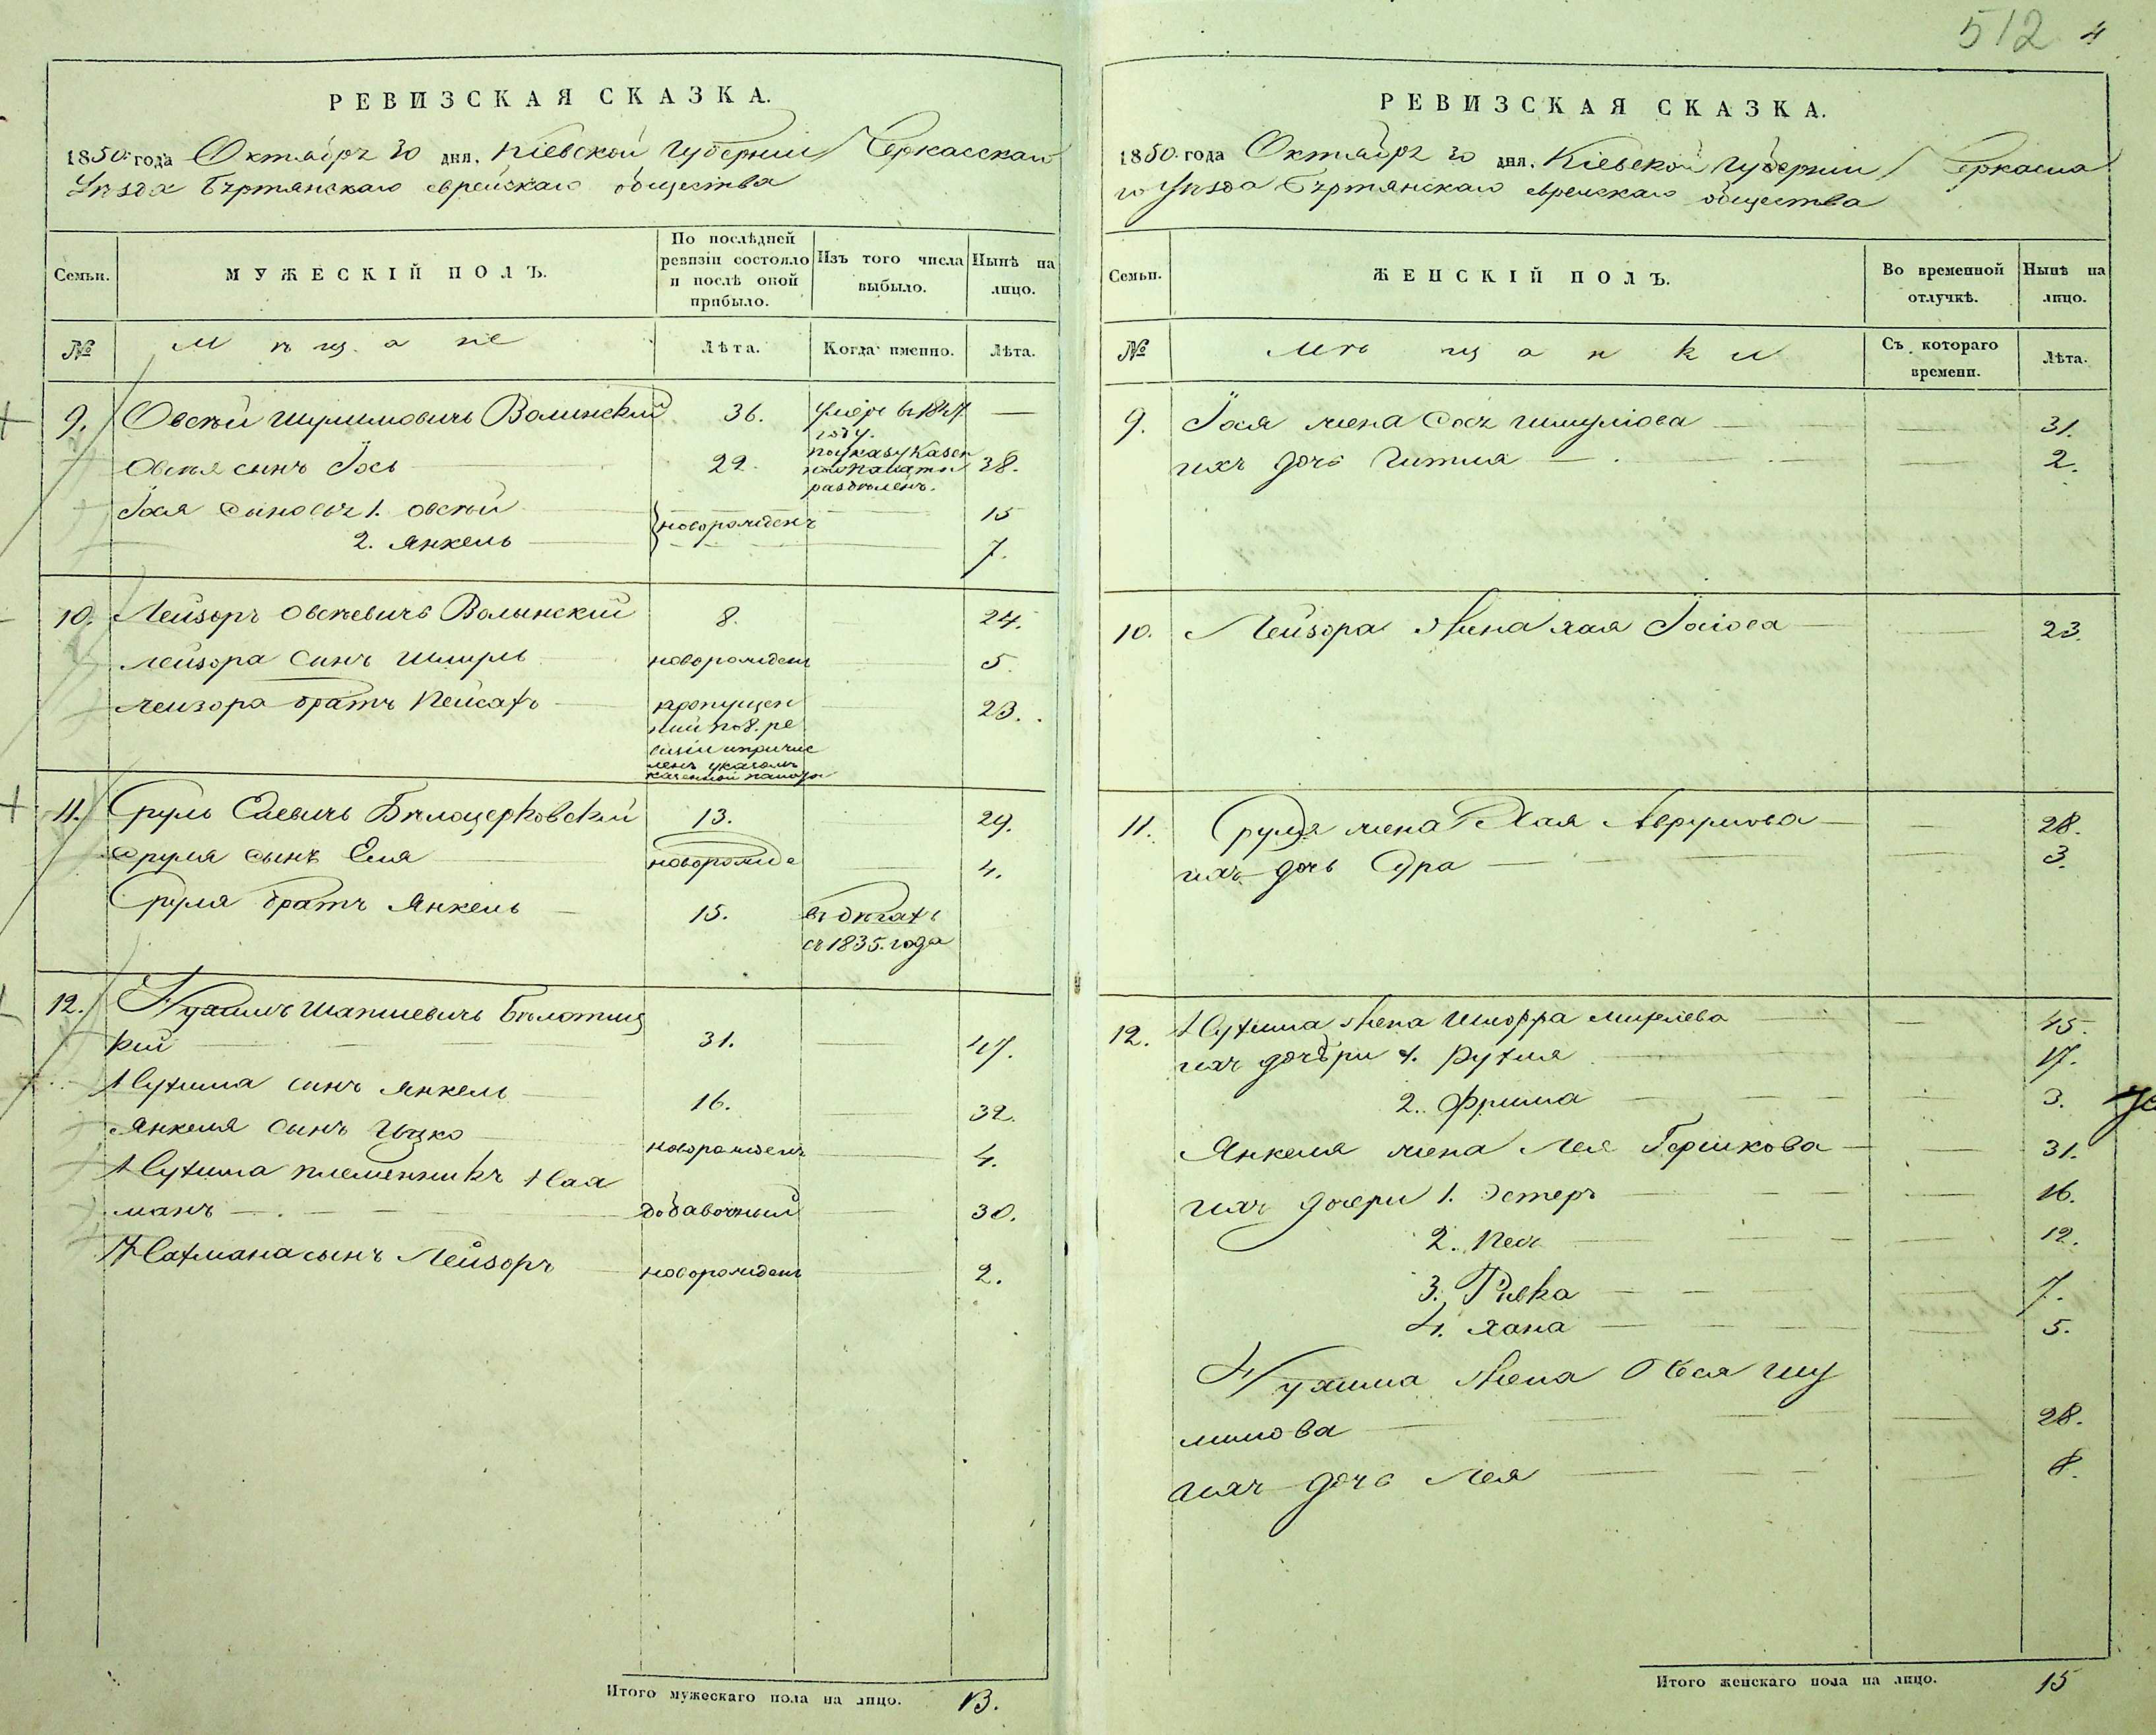 512 4
РЕВИЗСКАЯ СКАЗКА.
1850 года Октября 30 дня, Кіевской Губерніи Черкасскаго
Уѣзда еврейскаго общества
Семьи.
МУЖЕСКІЙ ПОЛЪ.
По послѣдней
ревизіи состояло
и послѣ оной
прибыло.
Изъ того числа
выбыло.
Нынѣ на
лицо.
№
Мѣщане
Лѣта.
Когда именно.
Лѣта.
9. Овсѣй Шулимовичъ Волинскій 36. умеръ въ 1847 —
году.
Овсѣя сынъ Іось 22. по указу Казен
ной палаты 38.
раздѣленъ.
Іося сыновья 1. Овсѣй новорожденъ 15
2. Янкель 7.
10. Лейзоръ Овсѣевичъ Волынскій 8. 24.
Лейзора сынъ Шмуль новорожденъ 5.
Лейзора братъ Пейсахъ пропущен 23.
ный по 8. ре
визіи и причис
ленъ указомъ
казенной палаты
11. Сруль Елевичъ Бѣлоцерковскій 13. 29.
Сруля сынъ Еля новорожде 4.
Сруля братъ Янкель 15. въ бѣгахъ
съ 1835. года
12. Нухимъ Шапшевичъ
кій 31. 47.
Нухима сынъ Янкель 16. 32.
Янкеля сынъ Ицко новорожденъ 4.
Нухима племенникъ Нах
манъ добавочный 30.
Нахмана сынъ Лейзоръ новорожденъ 2.
Итого мужескаго пола на лицо. 13.
РЕВИЗСКАЯ СКАЗКА.
1850 года Октября 30 дня, Кіевской Губерніи Черкасска
го Уѣзда еврейскаго общества
Семьи.
ЖЕНСКІЙ ПОЛЪ.
Во временной
отлучкѣ.
Нынѣ на
лицо.
№
Мѣщанки
Съ котораго
времени.
Лѣта.
9. Іося жена Сося Шмулiова 31.
ихъ дочь Гитля 2.
10. Лейзора жена Хая Іосіова 23.
11. Сруля жена Хая Аврумова 28.
ихъ дочь Сура 3.
12. Нухима жена 45.
ихъ дочери 1. Рухля 17.
2. Фрима 3.
Янкеля жена Лея Гершкова 31.
ихъ дочери 1. Эстеръ 16.
2. Песя 12.
3. Ривка 7.
4. Хана 5.
Нухима жена Шу
лимова 28.
ихъ дочь Лея 8.
Итого женскаго пола на лицо. 15